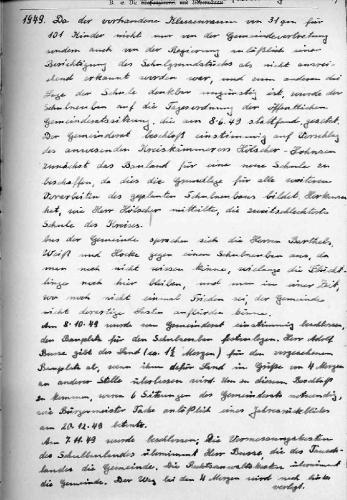 1949. Da der vorhandene Klassenraum von 31 qm für
101 Kinder nicht nur von der Gemeindevertretung
sondern auch von der Regierung anläßlich einer
Besichtigung des Schulgrundstücks als nicht ausrei-
chend erkannt worden war, und zum anderen die
Lage der Schule denkbar ungünstig ist, wurde der
Schulneubau auf die Tagesordnung der öffentlichen
Gemeinderatssitzung, die am 8.6.49 stattfand, gesetzt.
Der Gemeinderat beschloß einstimmig auf Vorschlag
des anwesenden Kreiskämmerers Hölscher
zunächst das Bauland für eine neue Schule zu
beschaffen, da dies die Grundlage für alle weiteren
Vorarbeiten des geplanten Schulneubaus bildet.
hat, wie Herr Hölscher mitteilte, die zweitschlechteste
Schule des Kreises.
Aus der Gemeinde sprachen sich die Herren Barthels,
Weiß und Hocke gegen einen Schulneubau aus, da
man noch nicht wissen könne, wielange die Flücht-
linge noch hier bleiben, und man in einer Zeit,
wo noch nicht einmal Frieden sei, der Gemeinde
nicht derartige Lasten aufbürden könne.
Am 8.10.49 wurde vom Gemeinderat einstimmig beschlossen,
den Bauplatz für den Schulneubau festzulegen. Herr Adolf
Busse gibt das Land (ca. 1½ Morgen) für den vorgesehenen
Bauplatz ab, wenn ihm dafür Land in Größe von 4 Morgen
an anderer Stelle überlassen wird. Um zu diesem Beschluß
zu kommen, waren 6 Sitzungen des Gemeinderats notwendig,
wie Bürgermeister Take anläßlich eines Jahresrückblickes
am 20.12.49 betonte.
Am 7.11.49 wurde beschlossen: Die Vermessungskosten
des Schulbaulandes übernimmt Herr Busse, die des Tausch-
landes die Gemeinde. Die Rechtsanwaltskosten übernimmt
die Gemeinde. Der Weg bei den 4 Morgen wird nach
verlegt.